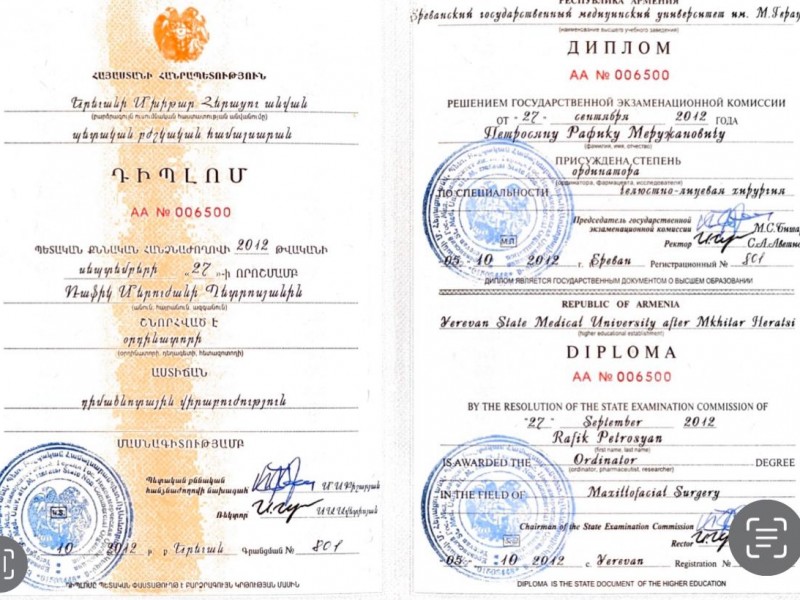 ՀԱՅԱՍՏԱՆԻ ՀԱՆՐԱՊԵՏՈՒԹՅՈՒՆ
Երևանի Մխիթար Հերացու անվան
(բարձրագույն ուսումնական հաստատության անվանումը)
պետական բժշկական համալսարան
ԴԻՊԼՈՄ
АА № 006500
ՊԵՏԱԿԱՆ ՔՆՆԱԿԱՆ ՀԱՆՁՆԱԺՈՂՈՎԻ 2012 ԹՎԱԿԱՆԻ
սեպտեմբերի „27“-Ի ՈՐՈՇՄԱՄԲ
Ռաֆիկ Մերուժանի Պետրոսյանին
(անուն, հայրանուն, ազգանուն)
ՇՆՈՐՀՎԱԾ Է
օրդինատորի
(օրդինատորի, դեղագետի, հետազոտողի)
ԱՍՏԻՃԱՆ
դիմածնոտային վիրաբուժություն
ՄԱՍՆԱԳԻՏՈՒԹՅԱՄԲ
Պետական քննական
հանձնաժողովի նախագահ
Ռեկտոր
10 2012 թ. ք. Երևան Գրանցման № 801
ԴԻՊԼՈՄԸ ՊԵՏԱԿԱՆ ՓԱՍՏԱԹՈՒՂԹ Է ԲԱՐՁՐԱԳՈՒՅՆ ԿՐԹՈՒԹՅԱՆ ՄԱՍԻՆ
РЕСПУБЛИКА АРМЕНИЯ
Ереванский государственный медицинский университет им. М.Герац
(наименование высшего учебного заведения)
ДИПЛОМ
АА № 006500
РЕШЕНИЕМ ГОСУДАРСТВЕННОЙ ЭКЗАМЕНАЦИОННОЙ КОМИССИИ
ОТ "27" сентября 2012 ГОДА
Петросяну Рафику Меружановичу
(фамилия, имя, отчество)
ПРИСУЖДЕНА СТЕПЕНЬ
ординатора
(ординатора, фармацевта, исследователя)
ПО СПЕЦИАЛЬНОСТИ челюстно-лицевая хирургия
Председатель государственной
экзаменационной комиссии
Ректор
М.П.
05. 10 2012 г. Ереван Регистрационный № 801
ДИПЛОМ ЯВЛЯЕТСЯ ГОСУДАРСТВЕННЫМ ДОКУМЕНТОМ О ВЫСШЕМ ОБРАЗОВАНИИ
REPUBLIC OF ARMENIA
Yerevan State Medical University after Mkhitar Heratsi
(higher educational establishment)
DIPLOMA
AA № 006500
BY THE RESOLUTION OF THE STATE EXAMINATION COMMISSION OF
"27" September 2012
Rafik Petrosyan
(first name, last name)
IS AWARDED THE Ordinator DEGREE
(ordinator, pharmaceutist, researcher)
IN THE FIELD OF Maxillofacial Surgery
Chairman of the State Examination Commission
Rector
05. 10 2012 c. Yerevan Registration №
DIPLOMA IS THE STATE DOCUMENT OF THE HIGHER EDUCATION